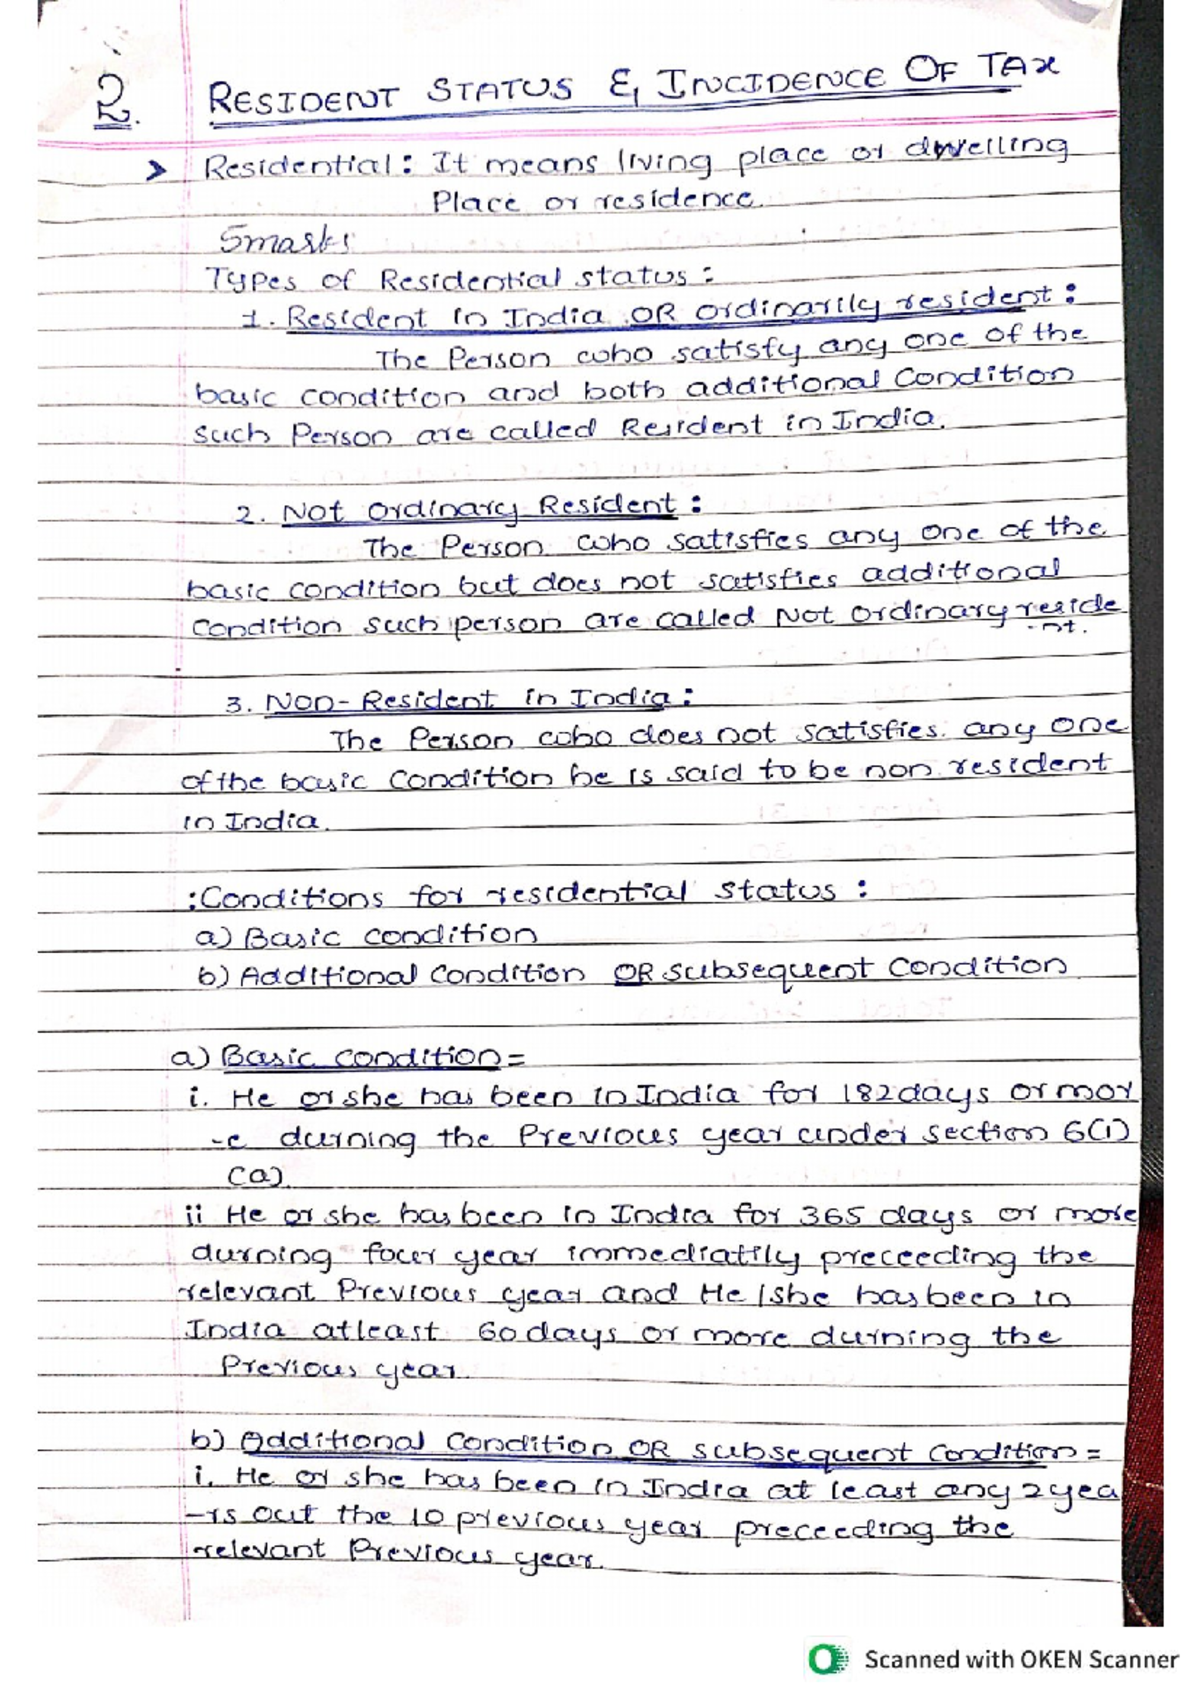 2. RESIDENT STATUS & INCIDENCE OF TAX
> Residential: It means living place or dwelling
Place or residence.
5marks
Types of Residential status:
1. Resident in India OR ordinarily resident:
The Person who satisfy any one of the
basic condition and both additional Condition
such Person are called Resident in India.
2. Not ordinary Resident:
The Person who satisfies any one of the
basic condition but does not satisfies additional
condition such person are called Not ordinary reside
-nt.
3. Non-Resident in India:
The Person who does not satisfies any one
of the basic Condition he is said to be non resident
in India.
:Conditions for residential status:
a) Basic condition
b) Additional Condition OR subsequent Condition
a) Basic condition=
i. He or she has been in India for 182 days or mor
-e durning the Previous year under section 6(1)
(a)
ii He or she has been in India for 365 days or more
durning four year immediatily preceeding the
relevant Previous year and He/she has been in
India atleast 60 days or more durning the
Previous year.
b) Additional Condition OR subsequent Condition=
i. He or she has been in India at least any 2 yea
-rs out the 10 previous year preceeding the
relevant Previous year.
Scanned with OKEN Scanner